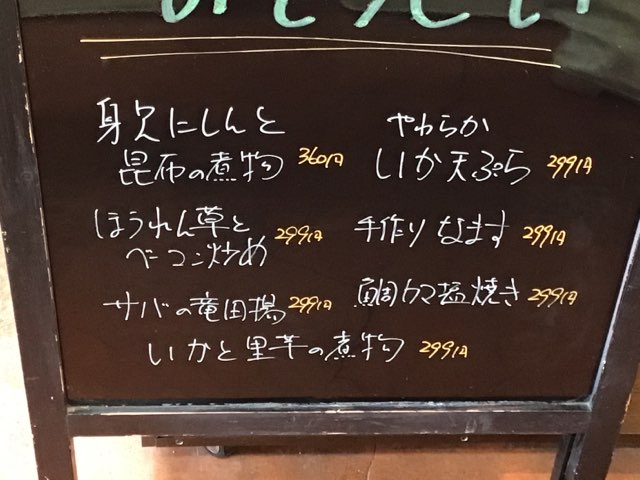 身欠にしんと
昆布の煮物 360円
やわらか
いか天ぷら 299円
ほうれん草と
ベーコン炒め 299円
手作りなます 299円
サバの竜田揚 299円
鯛カマ塩焼き 299円
いかと里芋の煮物 299円